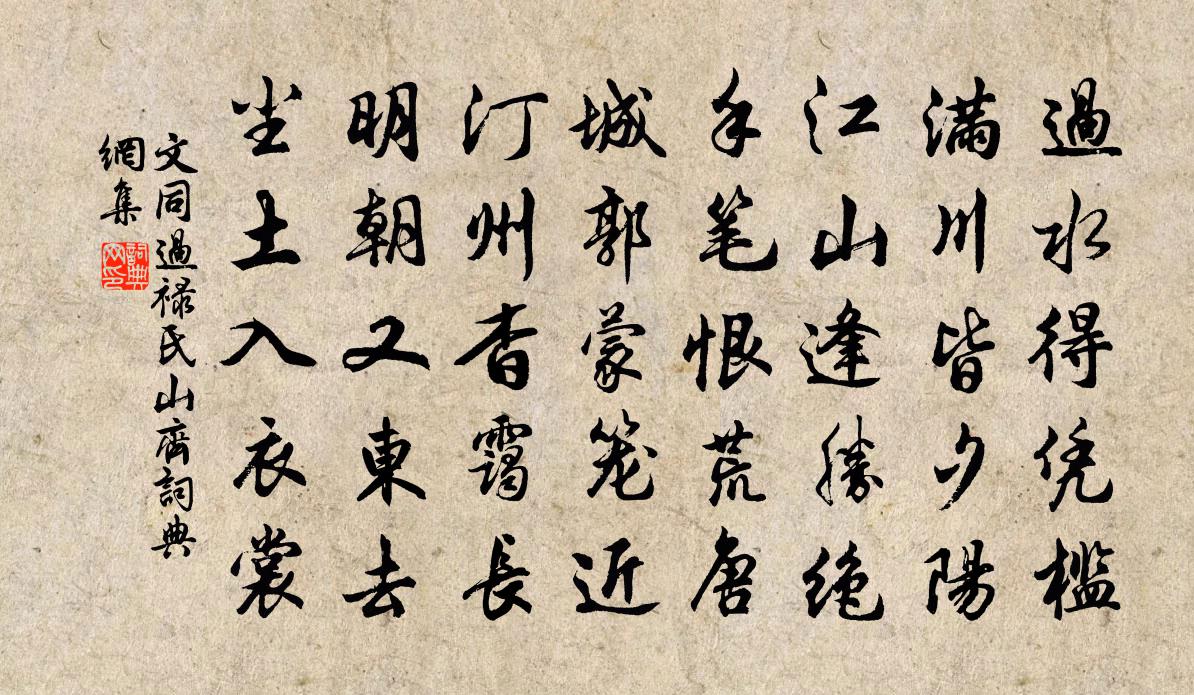 過水得凭檻
滿川皆夕陽
江山逢勝絶
手笔恨荒唐
城郭蒙笼近
汀州杳靄長
明朝又東去
尘土入衣裳
文同過禄氏山齋詞典
網集
詞典
网印